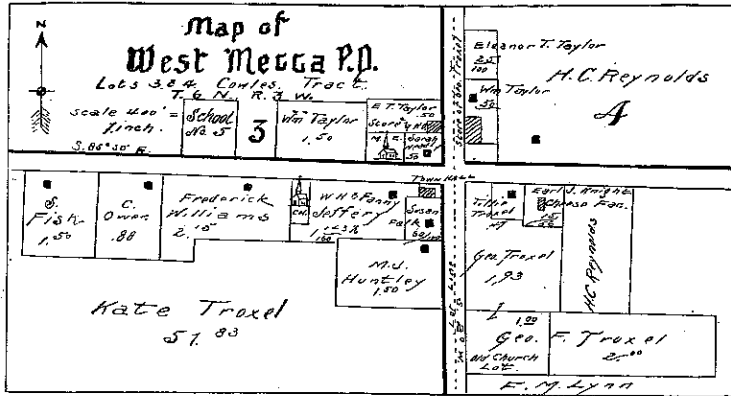 N
Map of
West Mecca P.O.
Lots 3 & 4. Cowles. Tract.
T. 6 N., R. 3 W.
scale 400' =
1 inch.
S. 85° 30' E.
School
No 5
3
Wm Taylor
1.50
E T. Taylor
.50
Store
M. E.
Sarah
50
Eleanor T. Taylor
25
100
Wm Taylor
.50
H.C. Reynolds
4
TOWN HALL
S.
Fish
1.50
C.
Owen
.88
Frederick
Williams
2.15
CH.
W H & Fanny
Jeffery
160
Susan
Falk
60/100
M.J.
Huntley
1.50
Kate Troxel
57.83
Lot Line
Tillie
Troxel
47
Earl J. Knight
Cheese Fac.
Geo. Troxel
1.93
H.C. Reynolds
1.00
Geo. F. Troxel
2.00
Old Church
Lot.
F. M. Lynn